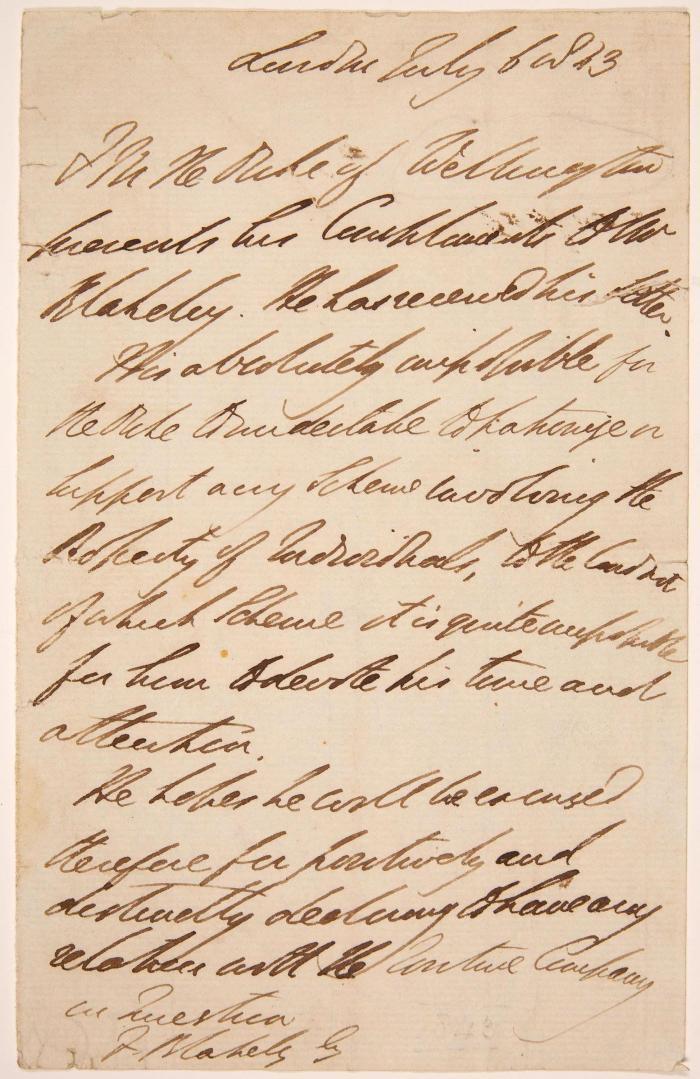 London July 6 1843
F M The Duke of Wellington
presents his Compliments to Mr
Blakeley. He has received his letter.
It is absolutely impossible for
the Duke to undertake to patronize or
support any Scheme involving the
Property of Individuals, to the Conduct
of which Scheme it is quite impossible
for him to devote his time and
attention.
He hopes he will be excused
therefore for positively and
distinctly declining to have any
relation with the Company
in Question
F. Blakely Esq